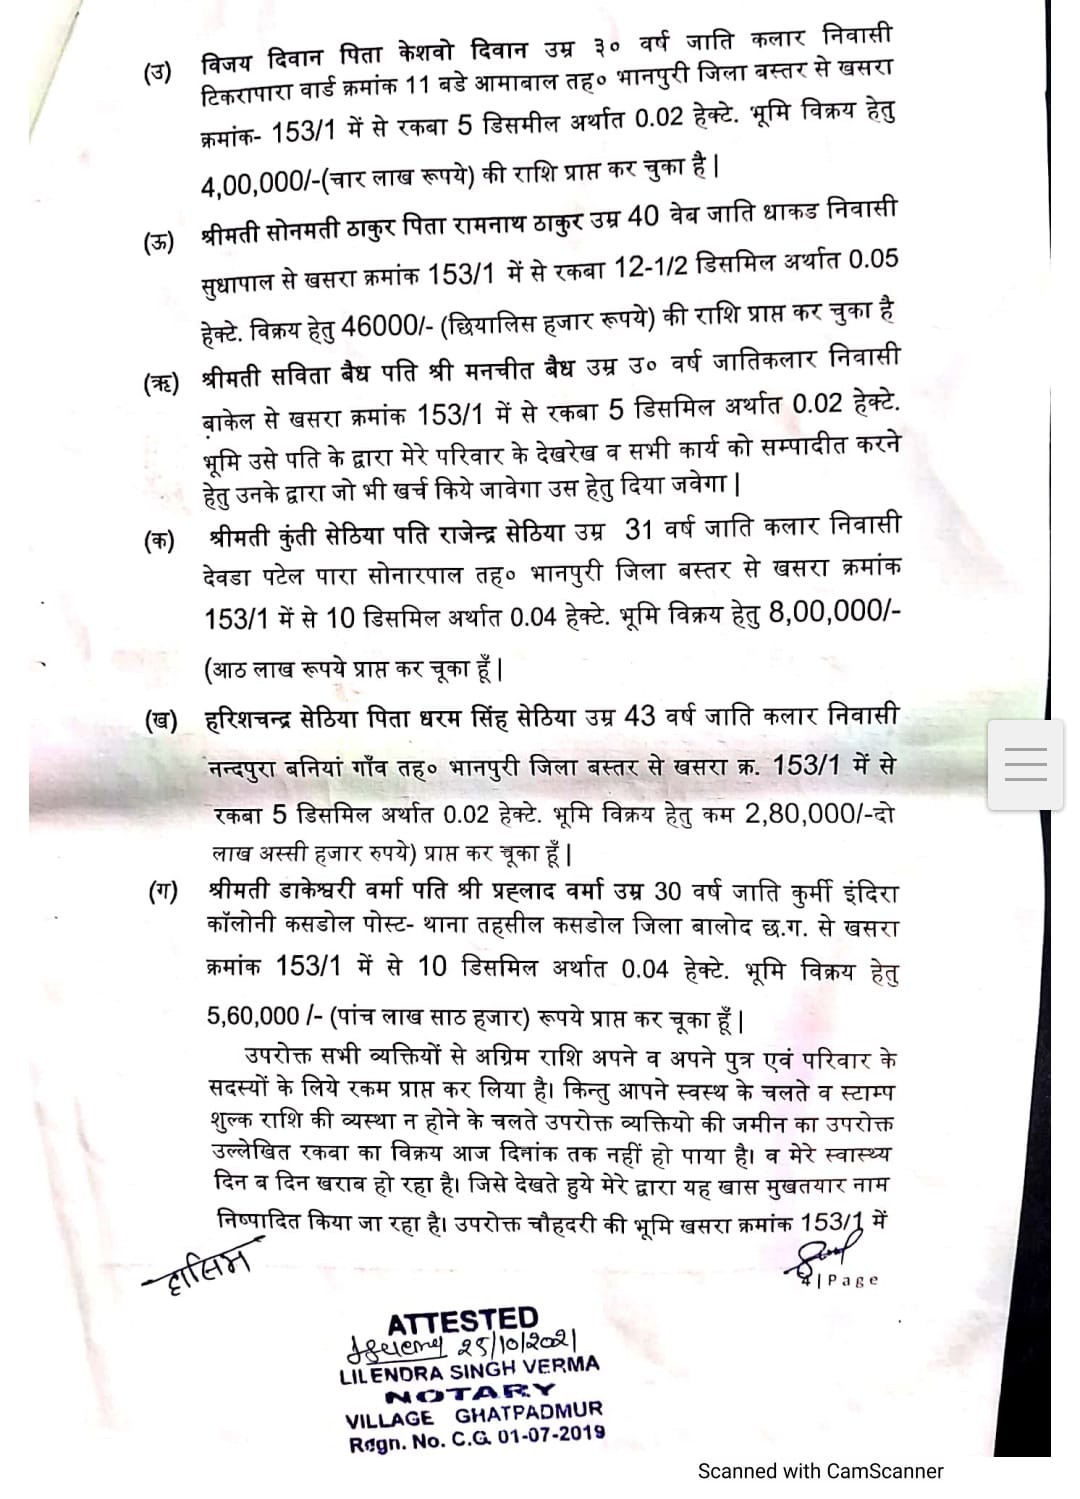 (उ) विजय दिवान पिता केशवो दिवान उम्र ३० वर्ष जाति कलार निवासी
टिकरापारा वार्ड क्रमांक 11 बडे आमाबाल तह० भानपुरी जिला बस्तर से खसरा
क्रमांक- 153/1 में से रकबा 5 डिसमील अर्थात 0.02 हेक्टे. भूमि विक्रय हेतु
4,00,000/-(चार लाख रूपये) की राशि प्राप्त कर चुका है|
(ऊ) श्रीमती सोनमती ठाकुर पिता रामनाथ ठाकुर उम्र 40 वेब जाति धाकड निवासी
सुधापाल से खसरा क्रमांक 153/1 में से रकबा 12-1/2 डिसमिल अर्थात 0.05
हेक्टे. विक्रय हेतु 46000/- (छियालिस हजार रूपये) की राशि प्राप्त कर चुका है
(ऋ) श्रीमती सविता बैध पति श्री मनचीत बैध उम्र उ० वर्ष जातिकलार निवासी
बाकेल से खसरा क्रमांक 153/1 में से रकबा 5 डिसमिल अर्थात 0.02 हेक्टे.
भूमि उसे पति के द्वारा मेरे परिवार के देखरेख व सभी कार्य को सम्पादीत करने
हेतु उनके द्वारा जो भी खर्च किये जावेगा उस हेतु दिया जवेगा|
(क) श्रीमती कुंती सेठिया पति राजेन्द्र सेठिया उम्र 31 वर्ष जाति कलार निवासी
देवडा पटेल पारा सोनारपाल तह० भानपुरी जिला बस्तर से खसरा क्रमांक
153/1 में से 10 डिसमिल अर्थात 0.04 हेक्टे. भूमि विक्रय हेतु 8,00,000/-
(आठ लाख रूपये प्राप्त कर चूका हूँ|
(ख) हरिशचन्द्र सेठिया पिता धरम सिंह सेठिया उम्र 43 वर्ष जाति कलार निवासी
नन्दपुरा बनियां गाँव तह० भानपुरी जिला बस्तर से खसरा क्र. 153/1 में से
रकबा 5 डिसमिल अर्थात 0.02 हेक्टे. भूमि विक्रय हेतु कम 2,80,000/-दो
लाख अस्सी हजार रुपये) प्राप्त कर चूका हूँ|
(ग) श्रीमती डाकेश्वरी वर्मा पति श्री प्रह्लाद वर्मा उम्र 30 वर्ष जाति कुर्मी इंदिरा
कॉलोनी कसडोल पोस्ट- थाना तहसील कसडोल जिला बालोद छ.ग. से खसरा
क्रमांक 153/1 में से 10 डिसमिल अर्थात 0.04 हेक्टे. भूमि विक्रय हेतु
5,60,000 /- (पांच लाख साठ हजार) रूपये प्राप्त कर चूका हूँ|
उपरोक्त सभी व्यक्तियों से अग्रिम राशि अपने व अपने पुत्र एवं परिवार के
सदस्यों के लिये रकम प्राप्त कर लिया है। किन्तु आपने स्वस्थ के चलते व स्टाम्प
शुल्क राशि की व्यस्था न होने के चलते उपरोक्त व्यक्तियो की जमीन का उपरोक्त
उल्लेखित रकबा का विक्रय आज दिनांक तक नहीं हो पाया है। व मेरे स्वास्थ्य
दिन ब दिन खराब हो रहा है। जिसे देखते हुये मेरे द्वारा यह खास मुखतयार नाम
निष्पादित किया जा रहा है। उपरोक्त चौहदरी की भूमि खसरा क्रमांक 153/1 में
हालिम
4 | Page
ATTESTED
25/10/2021
LILENDRA SINGH VERMA
NOTARY
VILLAGE GHATPADMUR
Regn. No. C.G. 01-07-2019
Scanned with CamScanner